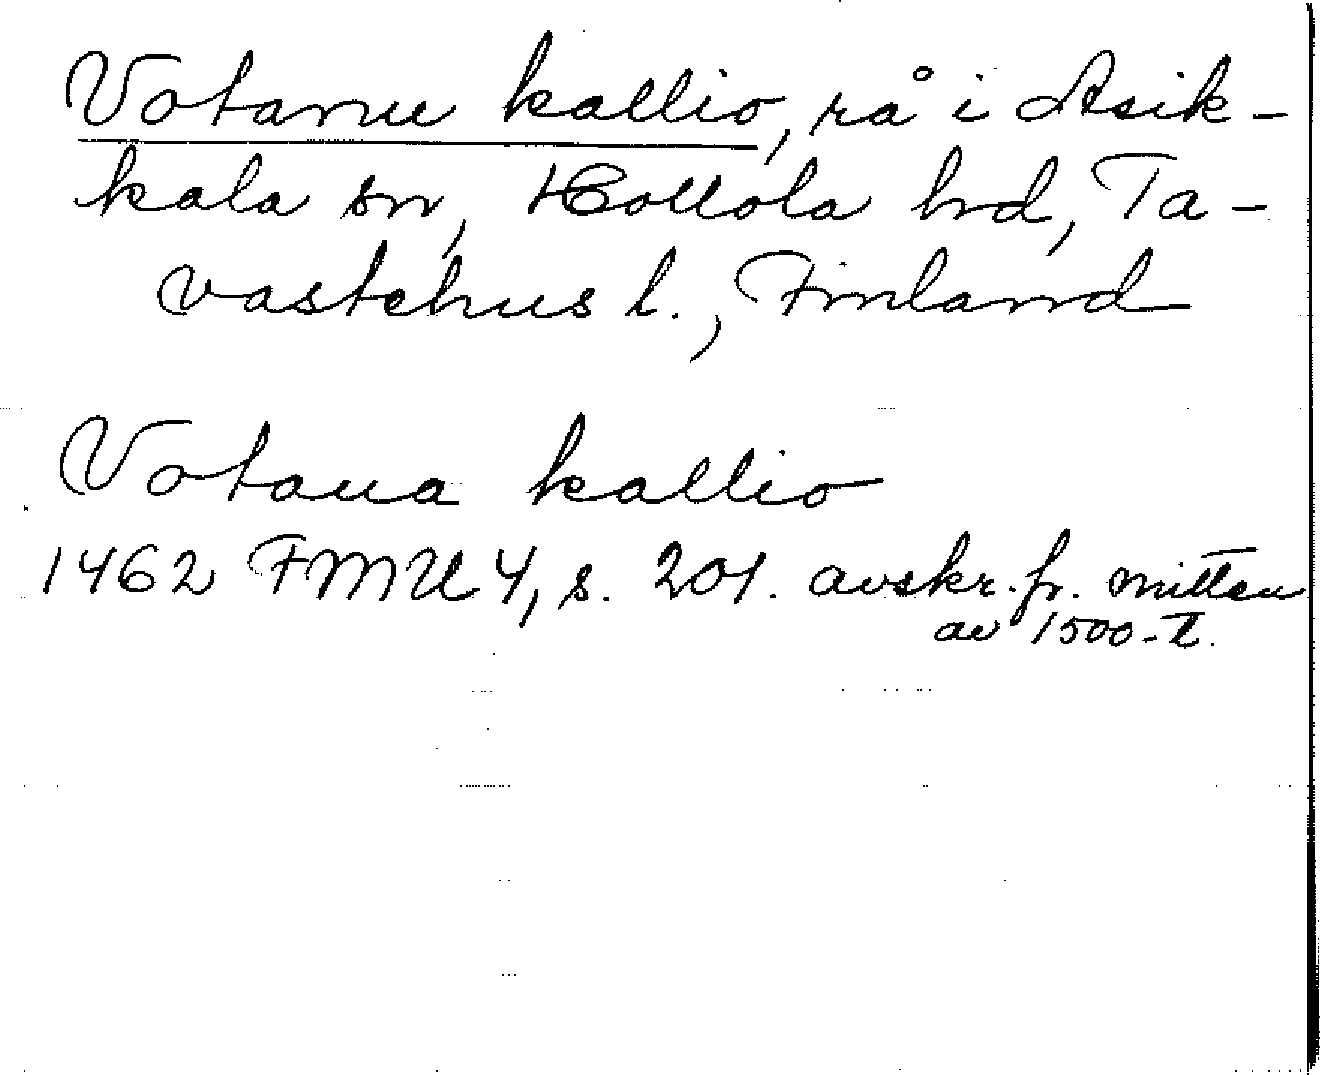 Votanu kallio, rå i Asik-
kala sn, Hollola hrd, Ta-
vastehus l., Finland
Votaua kallio
1462 FMU 4, s. 201. avskr. fr. mitten
av 1500-t.